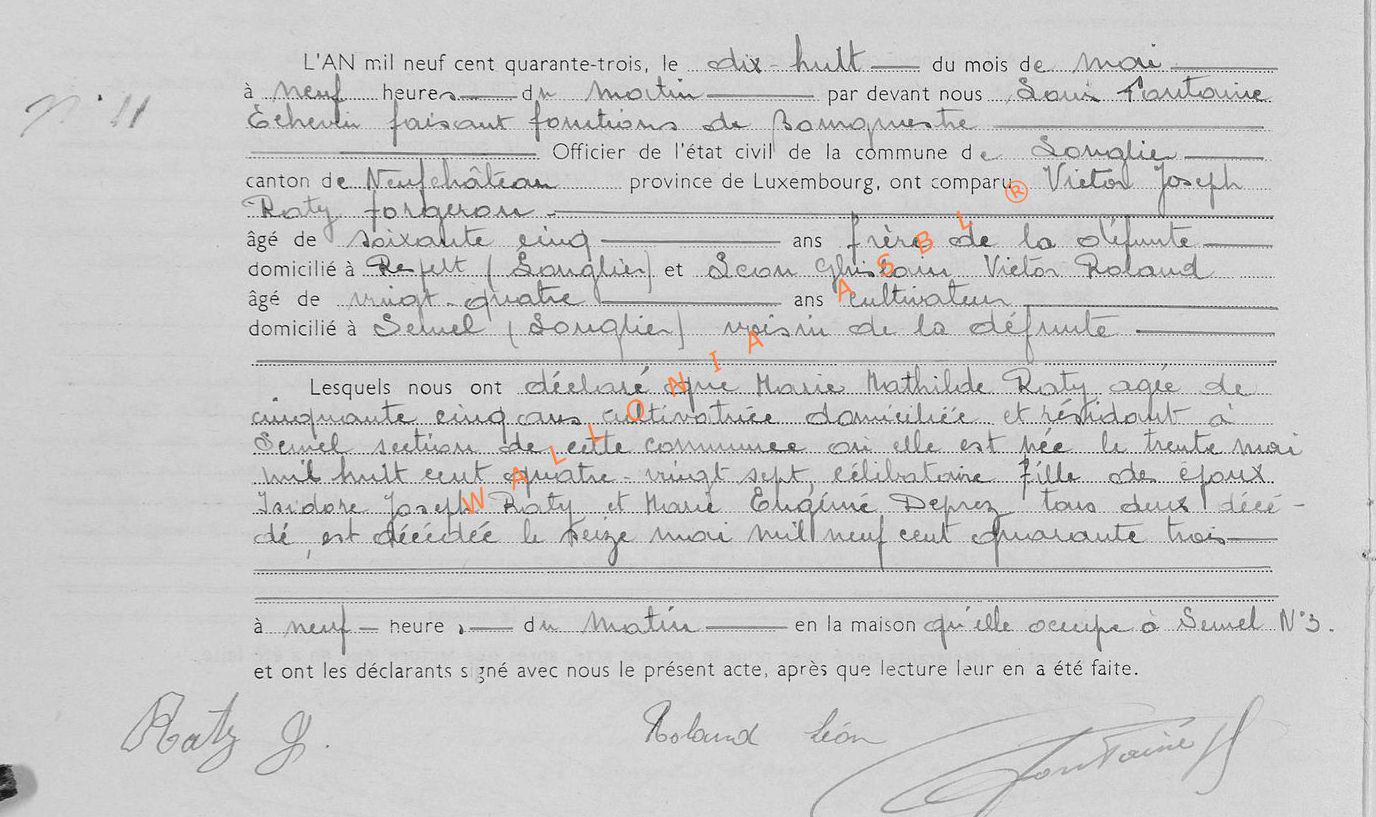 N° 11
L'AN mil neuf cent quarante-trois, le dix-huit du mois de mai
à neuf heures du matin par devant nous Louis Fontaine
Echevin faisant fonctions de Bourgmestre
Officier de l'état civil de la commune de Longlier
canton de Neufchâteau province de Luxembourg, ont comparu Victor Joseph
Raty forgeron
âgé de soixante cinq ans frère de la défunte
domicilié à (Longlier) et Léon Ghislain Victor Roland
âgé de vingt-quatre ans cultivateur
domicilié à Semel (Longlier) voisin de la défunte
Lesquels nous ont déclaré que Marie Mathilde Raty agée de
cinquante cinq ans cultivatrice domiciliée et résidant à
Semel section de cette commune où elle est née le trente mai
mil huit cent quatre-vingt sept, célibataire fille de époux
Isidore Joseph Raty et Marie Eugénie Deprez tous deux décé-
dé, est décédée le seize mai mil neuf cent quarante trois
à neuf heures du matin en la maison qu'elle occupe à Semel N°3.
et ont les déclarants signé avec nous le présent acte, après que lecture leur en a été faite.
Raty J. Roland Léon Fontaine
WALLONIA ASBL ®